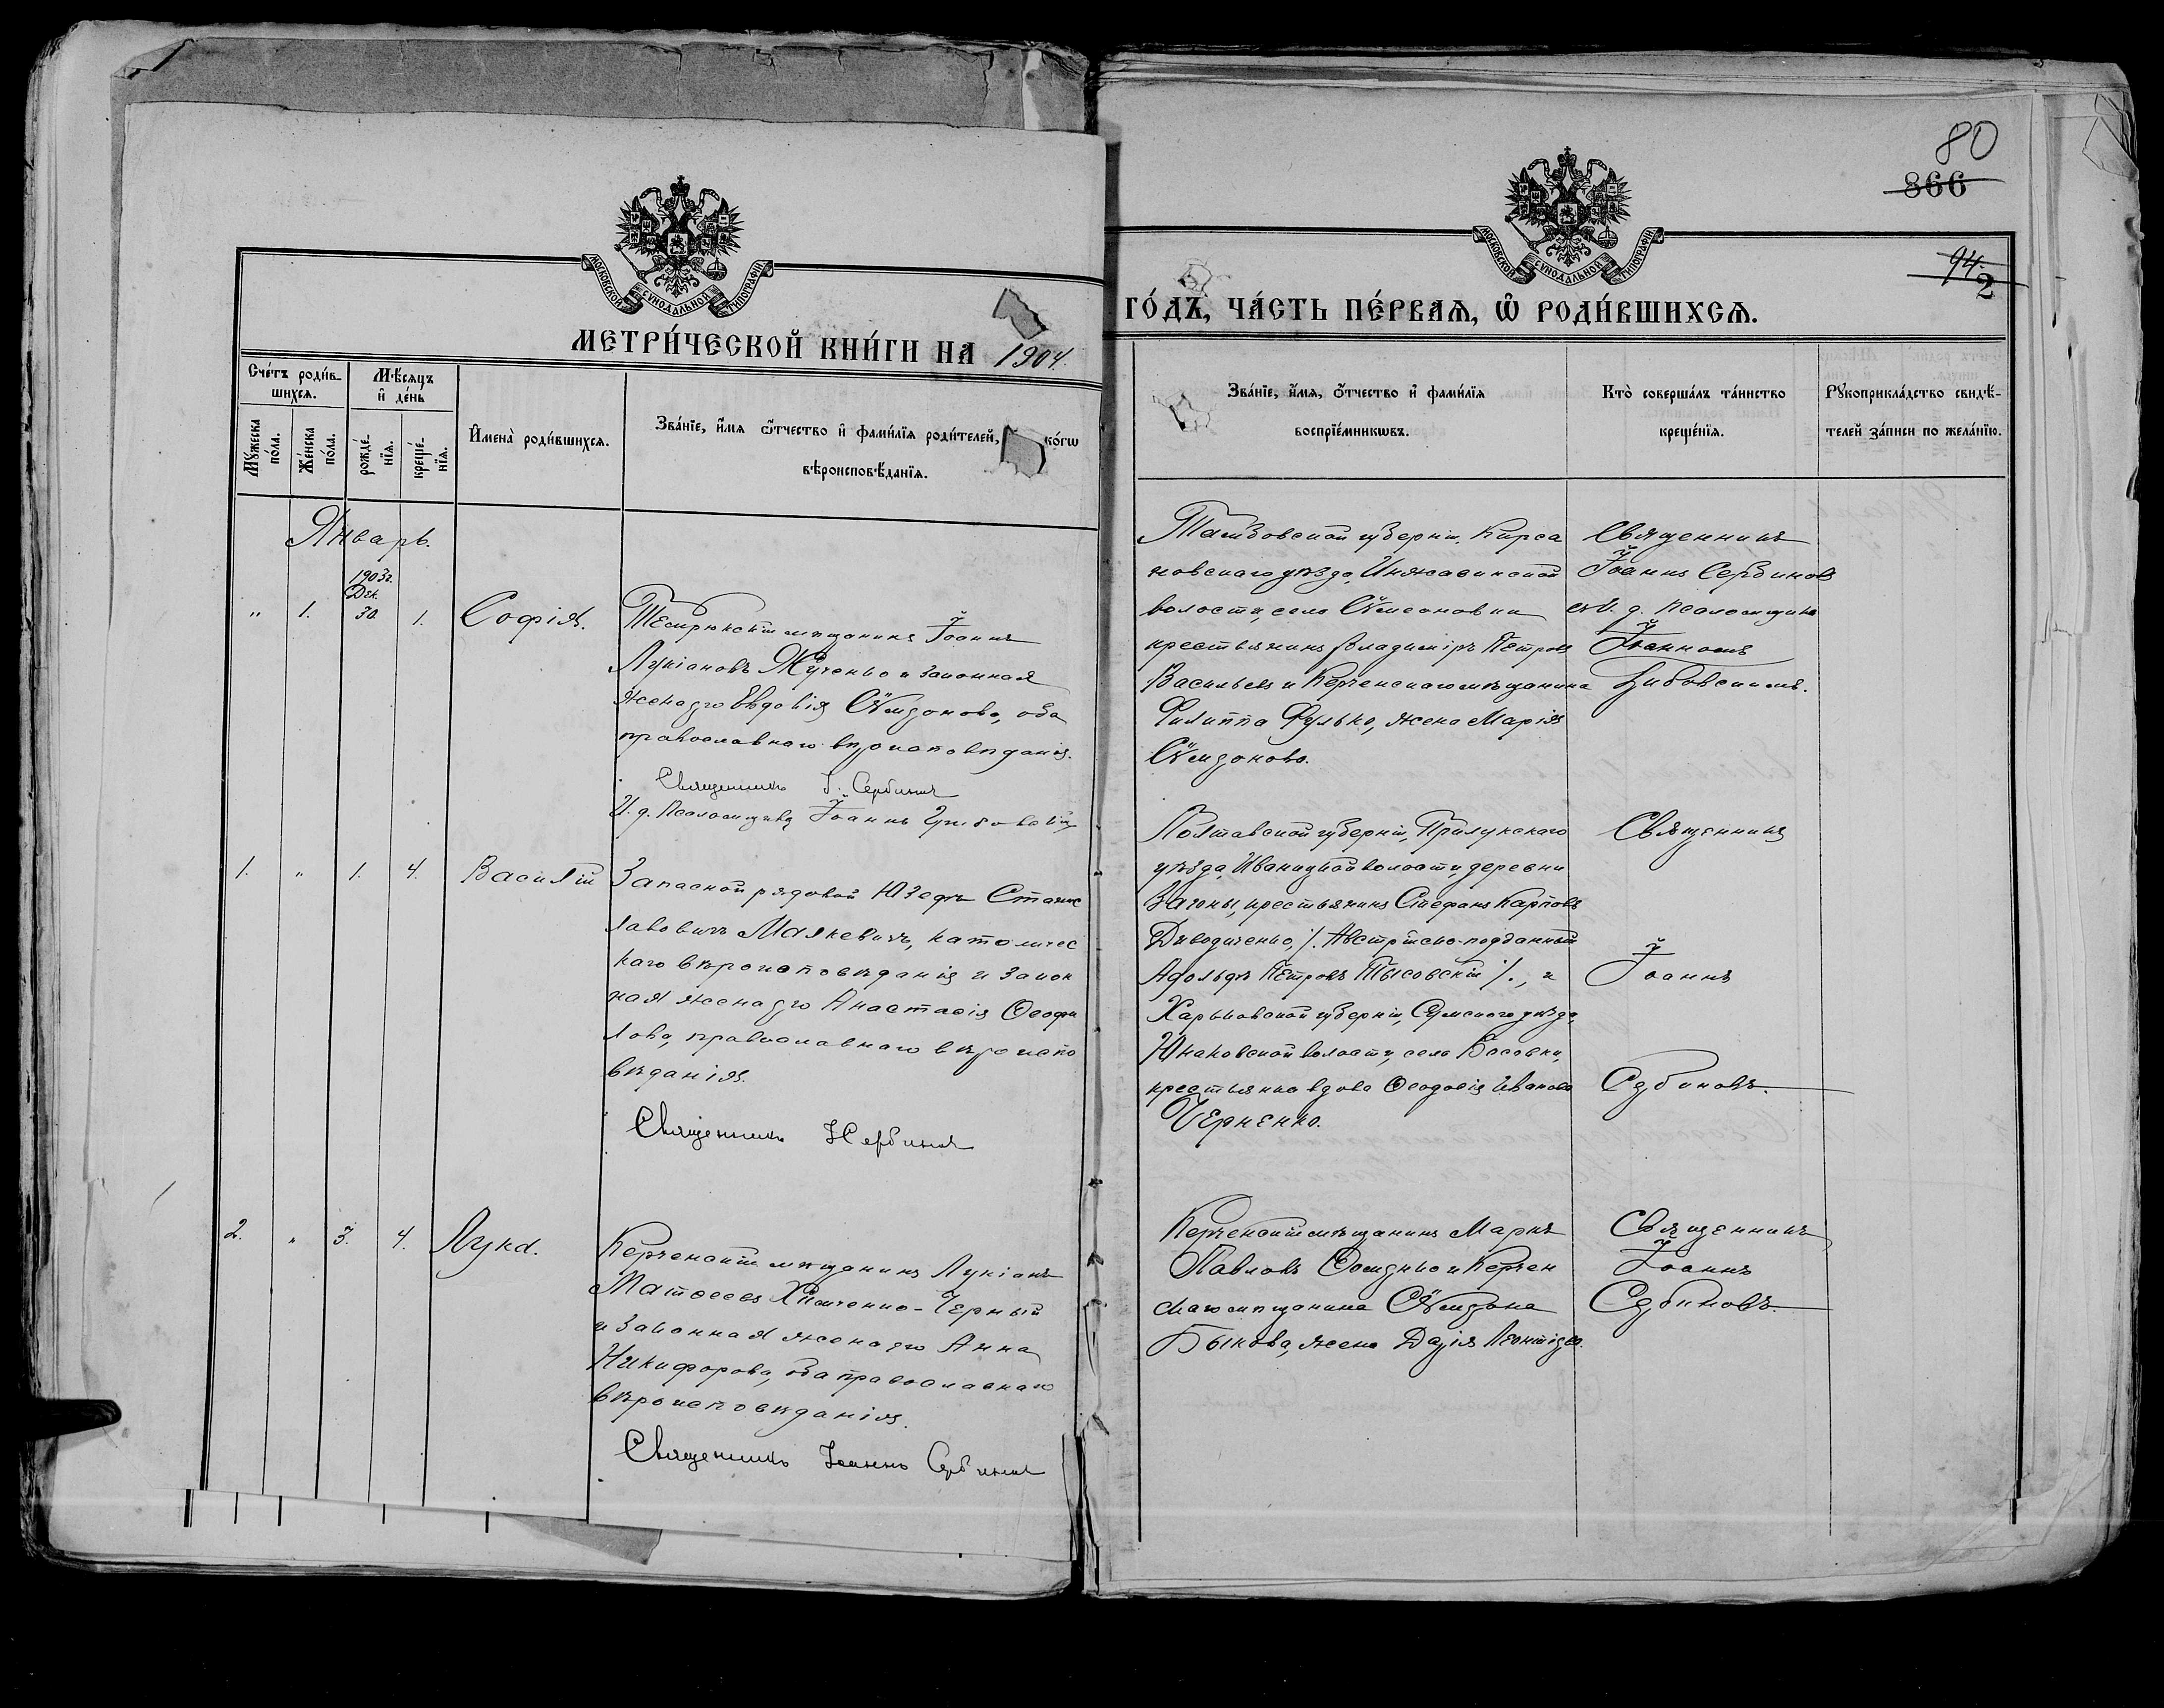 80
866
94.
2
МОСКОВСКОЙ СѴНОДАЛЬНОЙ ТИПОГРАФІИ
МОСКОВСКОЙ СѴНОДАЛЬНОЙ ТИПОГРАФІИ
МЕТРИ́ЧЕСКОЙ КНИ́ГИ НА 1904.
ГО́ДЪ, ЧА́СТЬ ПЕ́РВАѦ, Ѽ РОДИ́ВШИХСѦ.
Сче́тъ роди́в-
шихсѧ.
Мѣ́сѧцъ
и҆ де́нь
Мꙋ́жеска по́ла.
Же́нска по́ла.
рожде́-
нїѧ.
креще́-
нїѧ.
И҆мена̀ роди́вшихсѧ.
Зва́нїе, и҆́мѧ ѻ҆́тчество и҆ фами́лїѧ роди́телей, ко́гѡ
вѣроисповѣ́данїѧ.
Зва́нїе, и҆́мѧ, ѻ҆́тчество и҆ фами́лїѧ
воспрїе́мникѡвъ.
Кто̀ соверша́лъ та́инство
креще́нїѧ.
Рꙋкоприкла́дство свидѣ́-
телей за́писи по жела́нїю.
Январь.
1903г.
Дек.
" 1. 30. 1. Софія.
Темрюкскій мѣщанинъ Іоаннъ
Лукіановъ Жученко и законная
жена его Евдокія Сѵмеонова, оба
православнаго вѣроисповѣданія.
Священникъ І. Сербиновъ
И. д. Псаломщика Іоаннъ
Тамбовской губерніи, Кирса
новскаго уѣзда, Инжавинской
волости, села Сѵмеоновки
крестьянинъ Владиміръ Петровъ
Васильевъ и Керченскаго мѣщанина
Филиппа Фулько, жена Марія
Сѵмеонова.
Священникъ
Іоаннъ Сербиновъ
съ И. д. псаломщика
Іоанномъ
1. " 1. 4. Василій
Запасной рядовой Юзефъ Станис
лавовичъ Маякевичъ, католичес
каго вѣроисповѣданія и закон
ная жена его Анастасія Ѳеофи
лова, православнаго вѣроиспо
вѣданія.
Священникъ І Сербиновъ
Полтавской губерніи, Прилукскаго
уѣзда, Иваницкой волости, деревни
Загоны, крестьянинъ Стефанъ Карповъ
Диводиченко, /. Австрійско-подданный
Адольфъ Петровъ Тысовскій /., и
Харьковской губерніи, Сумского уѣзда,
Юнаковской волости, села Басовки,
крестьянка вдова Ѳеодосія Иванова
Черненко.
Священникъ
Іоаннъ
Сербиновъ.
2. " 3. 4. Лука.
Керченскій мѣщанинъ Лукіанъ
Матѳеевъ Химченко-Черный
и законная жена его Анна
Никифорова, оба православнаго
вѣроисповѣданія.
Священникъ Іоаннъ Сербиновъ
Керченскій мѣщанинъ Маркъ
Павловъ и Керчен
скаго мѣщанина Сѵмеона
Быкова, жена Дарія Леонтіева.
Священникъ
Іоаннъ
Сербиновъ.